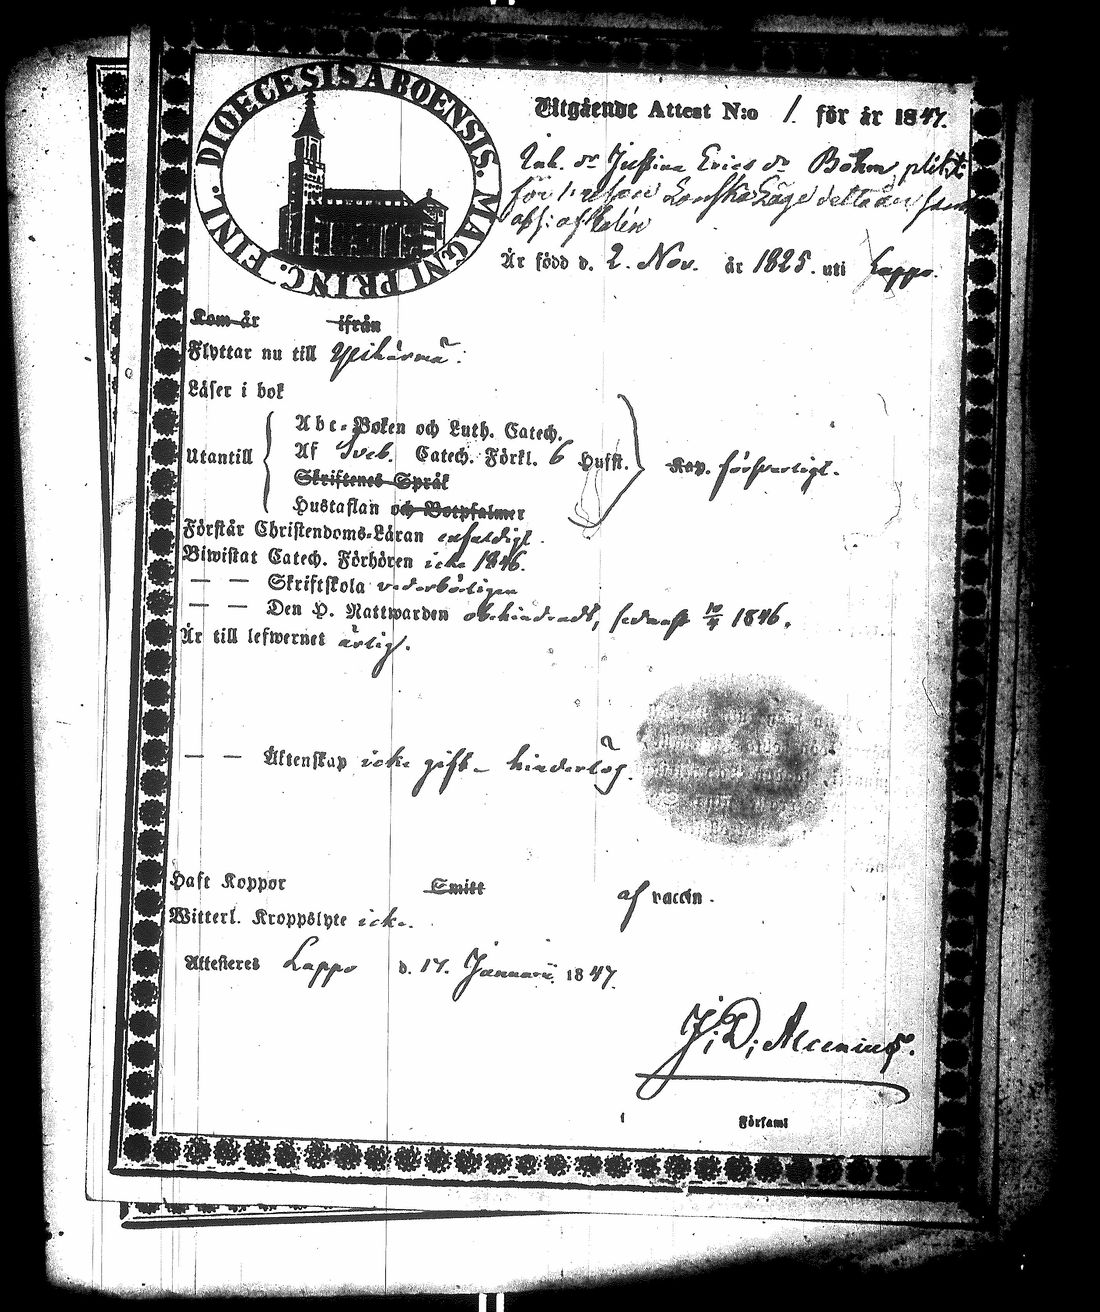 DIOECESIS ABOENSIS. MAGNI PRINC. FINL.
Utgående Attest N:o 1. för år 1847.
Inh. dr Justina Erics dr Böhm, plikt
för
Är född d. 2. Nov. år 1825. uti Lappo.
Kom år ifrån
Flyttar nu till Ylihärmä.
Läser i bok
Utantill
Abc-Boken och Luth. Catech.
Af Sveb. Catech. Förkl. 6 Hufst. Kap. försvarligt.
Skriftenes Språk
Hustaflan och Botpsalmer
Förstår Christendoms-Läran enfaldigt.
Biwistat Catech. Förhören icke 1846.
— — Skriftskola vederbörligen
— — Den H. Nattwarden obehindradt, sednast 10/4 1846.
Är till lefwernet ärlig.
— — Äktenskap icke gift – hinderlös.
Haft Koppor Smitt af vaccin.
Witterl. Kroppslyte icke.
Attesteres Lappo d. 17. Januarii 1847.
J. D. Alcenius.
Församl